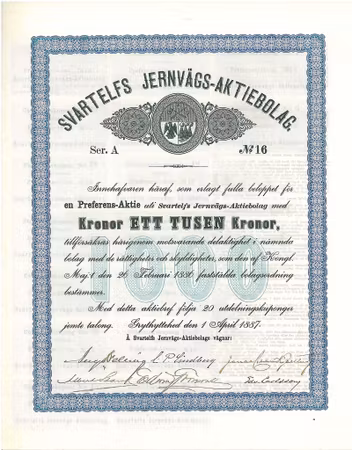 SVARTELFS JERNVÄGS-AKTIEBOLAG.
Ser. A № 16
Innehafvaren häraf, som erlagt fulla beloppet för
en Preferens-Aktie uti Svartelfs Jernvägs-Aktiebolag med
Kronor ETT TUSEN Kronor,
tillförsäkras härigenom motsvarande delaktighet i nämnda
bolag med de rättigheter och skyldigheter, som den af Kongl.
Maj:t den 26 Februari 1886 fastställda bolagsordning
bestämmer.
Med detta aktiebref följa 20 utdelningskuponger
jemte talong. Grythyttehed den 1 April 1887.
Å Svartelfs Jernvägs-Aktiebolags vägnar: